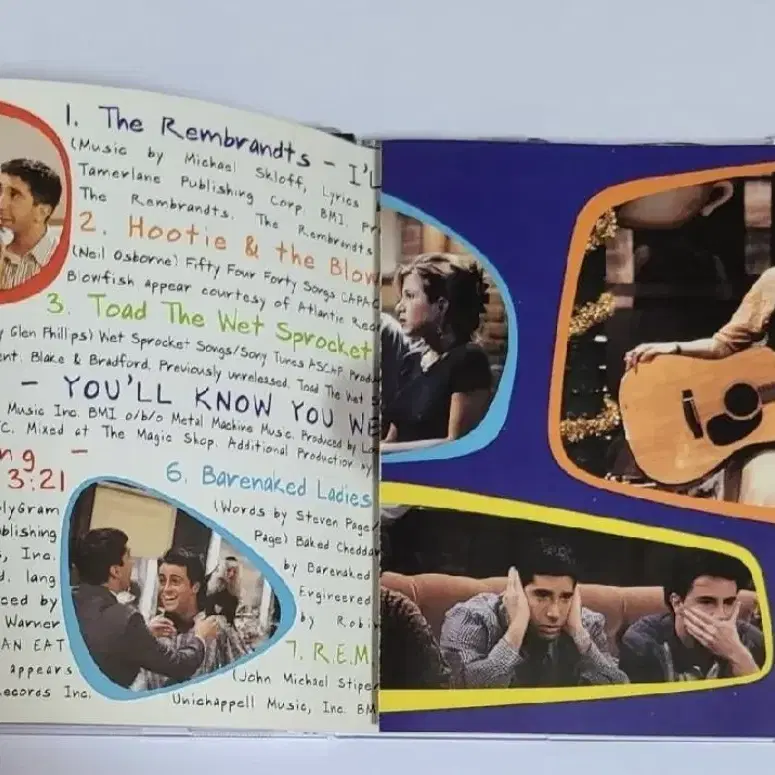 1. The Rembrandts - I'L
(Music by Michael Skloff, Lyrics
Tamerlane Publishing Corp. BMI. Pr
The Rembrandts. The Rembrandts
2. Hootie & the Blow
(Neil Osborne) Fifty Four Forty Songs CAPAC
Blowfish appear courtesy of Atlantic Rec
3. Toad The Wet Sprocket
y Glen Phillips) Wet Sprocket Songs/Sony Tunes ASCAP. Produ
ent. Blake & Bradford. Previously unreleased. Toad The Wet S
- YOU'LL KNOW YOU WE
Music Inc. BMI o/b/o Metal Machine Music. Produced by Lou
C. Mixed at The Magic Shop. Additional Production by
ng -
3:21
lyGram
blishing
s, Inc.
d. lang
ced by
Warner
AN EAT
appears
ecords Inc.
6. Barenaked Ladies
(Words by Steven Page/
Page) Baked Cheddar
by Barenaked
Engineered
by Robi
7. R.E.M.
(John Michael Stipe
Unichappell Music, Inc. BM